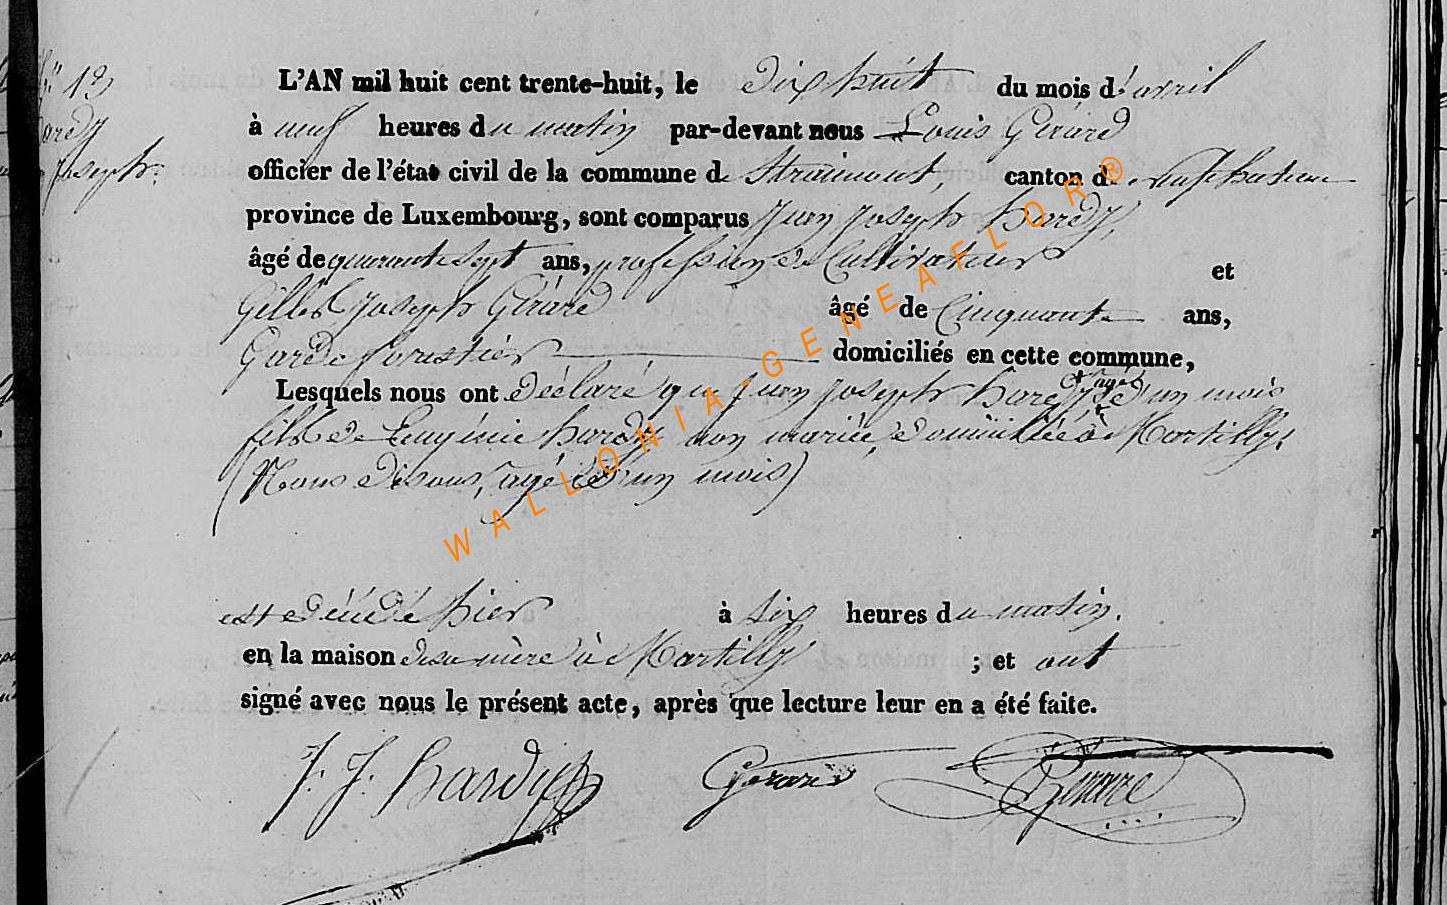 N° 12
hardy
joseph.
L'AN mil huit cent trente-huit, le dix huit du mois d'avril
à neuf heures du matin par-devant nous Louis Gérard
officier de l'état civil de la commune de Straimont, canton de neufchateau
province de Luxembourg, sont comparus Jean Joseph hardy,
âgé de quarante sept ans, profession de Cultivateur et
Gilles Joseph Gérard âgé de Cinquante ans,
Garde forestier domiciliés en cette commune,
Lesquels nous ont déclaré que Jean Joseph hardy agé d'un mois
fils de Eugénie hardy non mariée, domiciliée à Martilly.
(Nous disons, agé d'un mois)
est décédé hier à six heures du matin.
en la maison de sa mère à Martilly ; et ont
signé avec nous le présent acte, après que lecture leur en a été faite.
J. J. hardy Gerard Gerard
WALLONIA-GENEAFLOR®